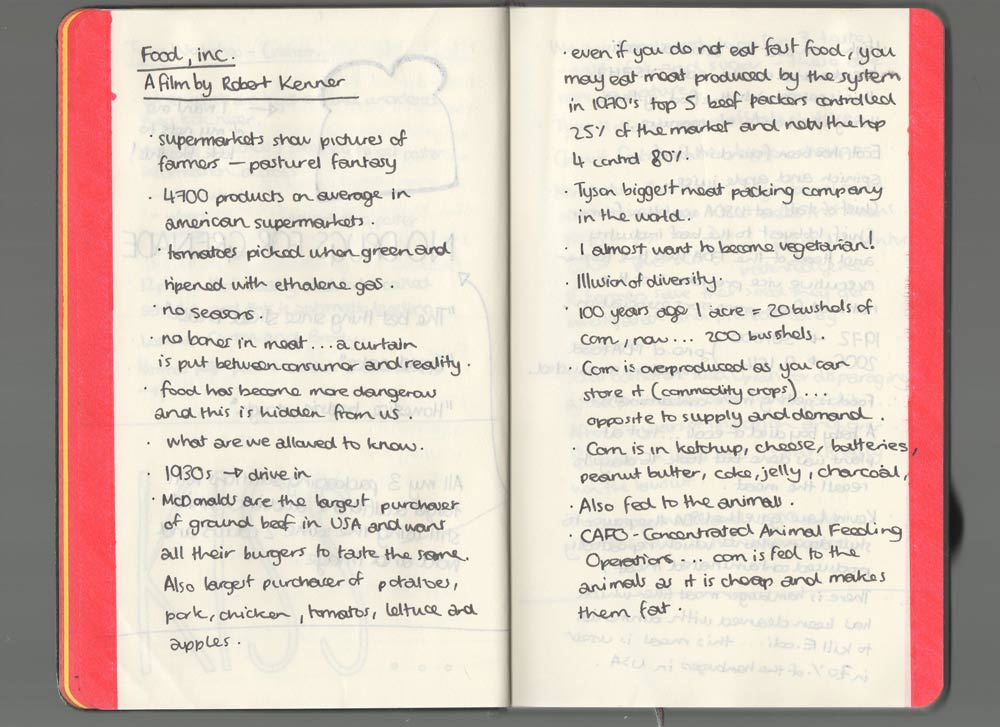 Food, inc.
A film by Robert Kenner
· supermarkets show pictures of
farmers – pasturel fantasy
· 4700 products on average in
american supermarkets.
· tomatoes picked when green and
ripened with ethalene gas.
· no seasons.
· no bones in meat... a curtain
is put between consumer and reality.
· food has become more dangerous
and this is hidden from us.
· what are we allowed to know.
· 1930s → drive in
· McDonalds are the largest purchaser
of ground beef in USA and wants
all their burgers to taste the same.
Also largest purchaser of potatoes,
pork, chicken, tomatos, lettuce and
apples.
· even if you do not eat fast food, you
may eat meat produced by the system
in 1970's top 5 beef packers controlled
25% of the market and now the top
4 control 80%.
· Tyson biggest meat packing company
in the world.
· I almost want to become vegetarian!
· Illusion of diversity.
· 100 years ago 1 acre = 20 bushels of
corn, now... 200 busshels.
· Corn is overproduced as you can
store it (commodity crops)....
opposite to supply and demand.
· Corn is in ketchup, cheese, batteries,
peanut butter, coke, jelly, charcoal,
· Also fed to the animals.
· CAFO - Concentrated Animal Feeding
Operations... corn is fed to the
animals as it is cheap and makes
them fat.